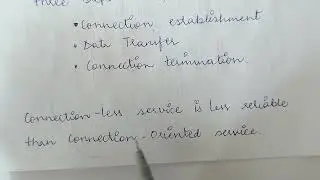 three steps
• Connection establishment
• Data Transfer
• Connection termination.
Connection-less service is less reliable
than connection-oriented service.